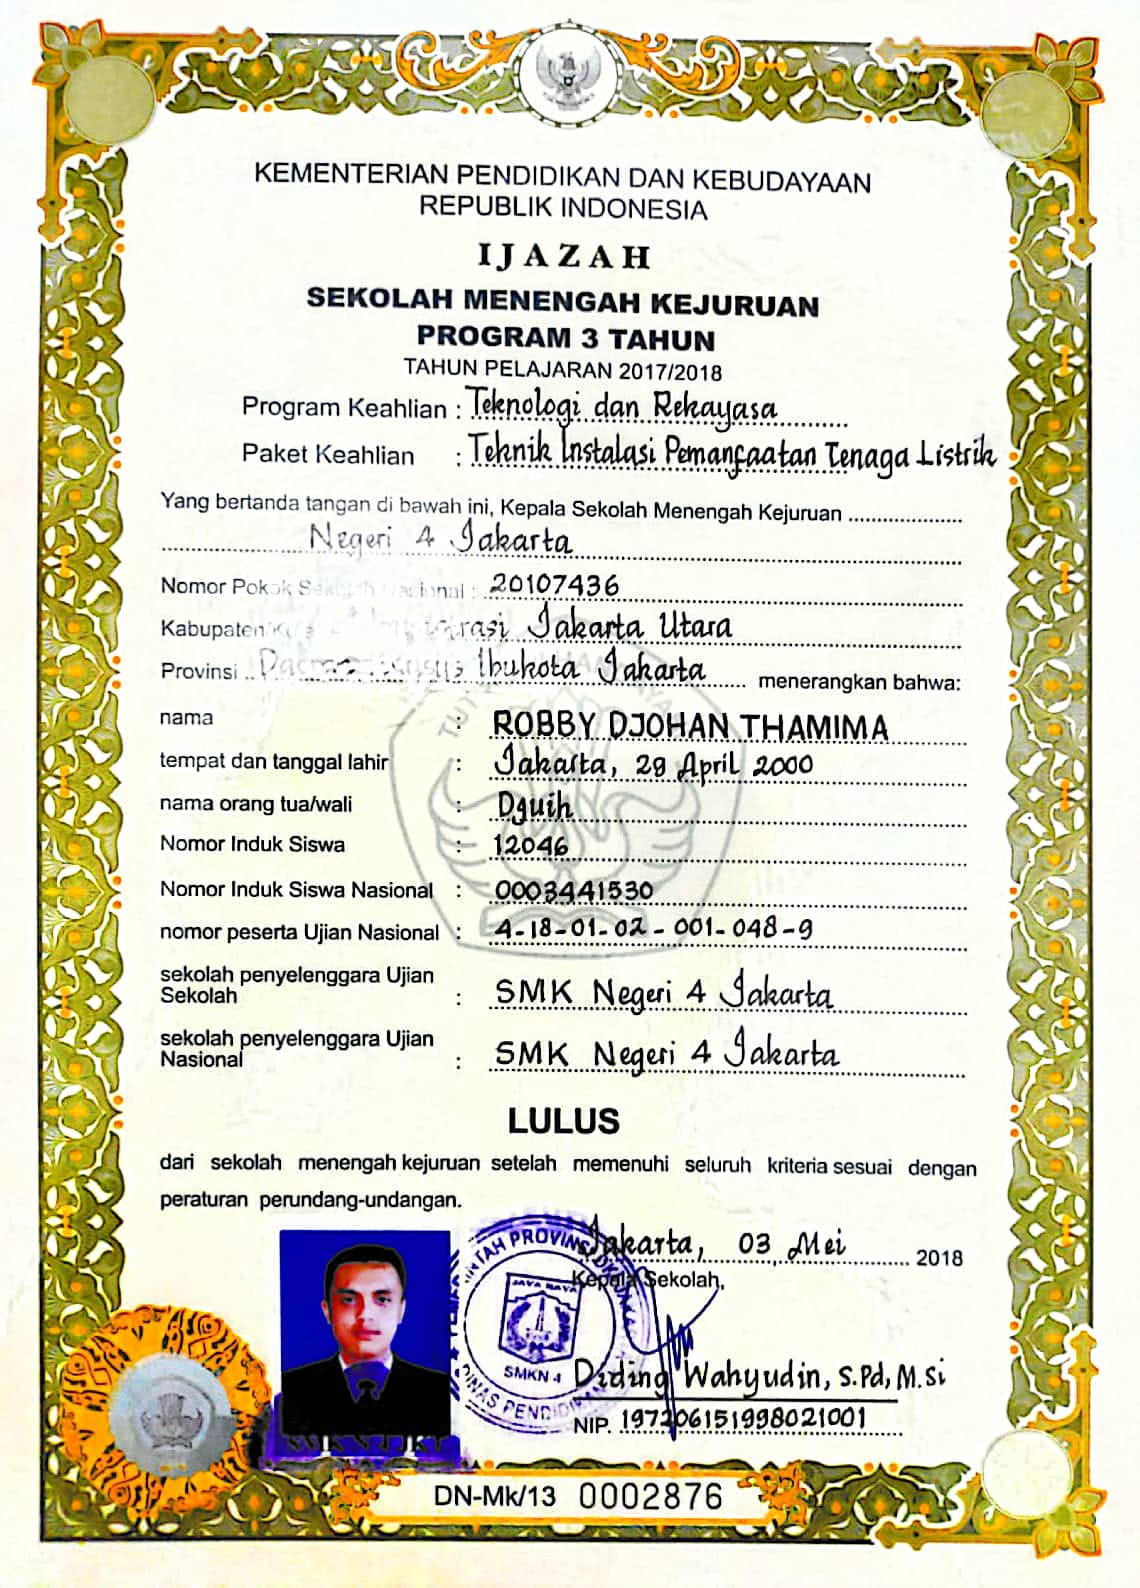 KEMENTERIAN PENDIDIKAN DAN KEBUDAYAAN
REPUBLIK INDONESIA
IJAZAH
SEKOLAH MENENGAH KEJURUAN
PROGRAM 3 TAHUN
TAHUN PELAJARAN 2017/2018
Program Keahlian : Teknologi dan Rekayasa
Paket Keahlian : Teknik Instalasi Pemanfaatan Tenaga Listrik
Yang bertanda tangan di bawah ini, Kepala Sekolah Menengah Kejuruan
Negeri 4 Jakarta
Nomor Pokok Sekolah Nasional : 20107436
Kabupaten/Kota Jakarta Utara
Provinsi Ibukota Jakarta menerangkan bahwa:
nama : ROBBY DJOHAN THAMIMA
tempat dan tanggal lahir : Jakarta, 29 April 2000
nama orang tua/wali :
Nomor Induk Siswa : 12046
Nomor Induk Siswa Nasional : 0003441530
nomor peserta Ujian Nasional : 4-18-01-02-001-048-9
sekolah penyelenggara Ujian
Sekolah : SMK Negeri 4 Jakarta
sekolah penyelenggara Ujian
Nasional : SMK Negeri 4 Jakarta
LULUS
dari sekolah menengah kejuruan setelah memenuhi seluruh kriteria sesuai dengan
peraturan perundang-undangan.
Jakarta, 03 Mei 2018
Kepala Sekolah,
JAYA RAYA
SMKN 4
Diding Wahyudin, S.Pd, M.Si
NIP. 197206151998021001
DN-Mk/13 0002876